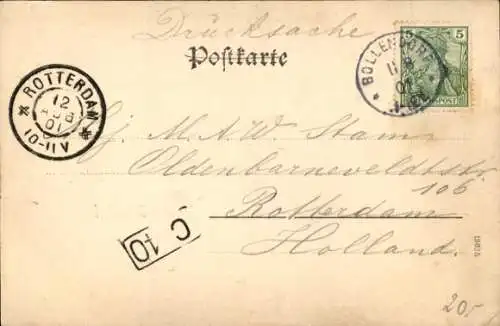 Drucksache
Postkarte
BOLLENDORF
11 8
01
5
REICHSPOST
ROTTERDAM
12
AUG
01
10-11 V
M. A. W. Stam
Oldenbarneveldtstr
106
Rotterdam
Holland.
C 10
20,-